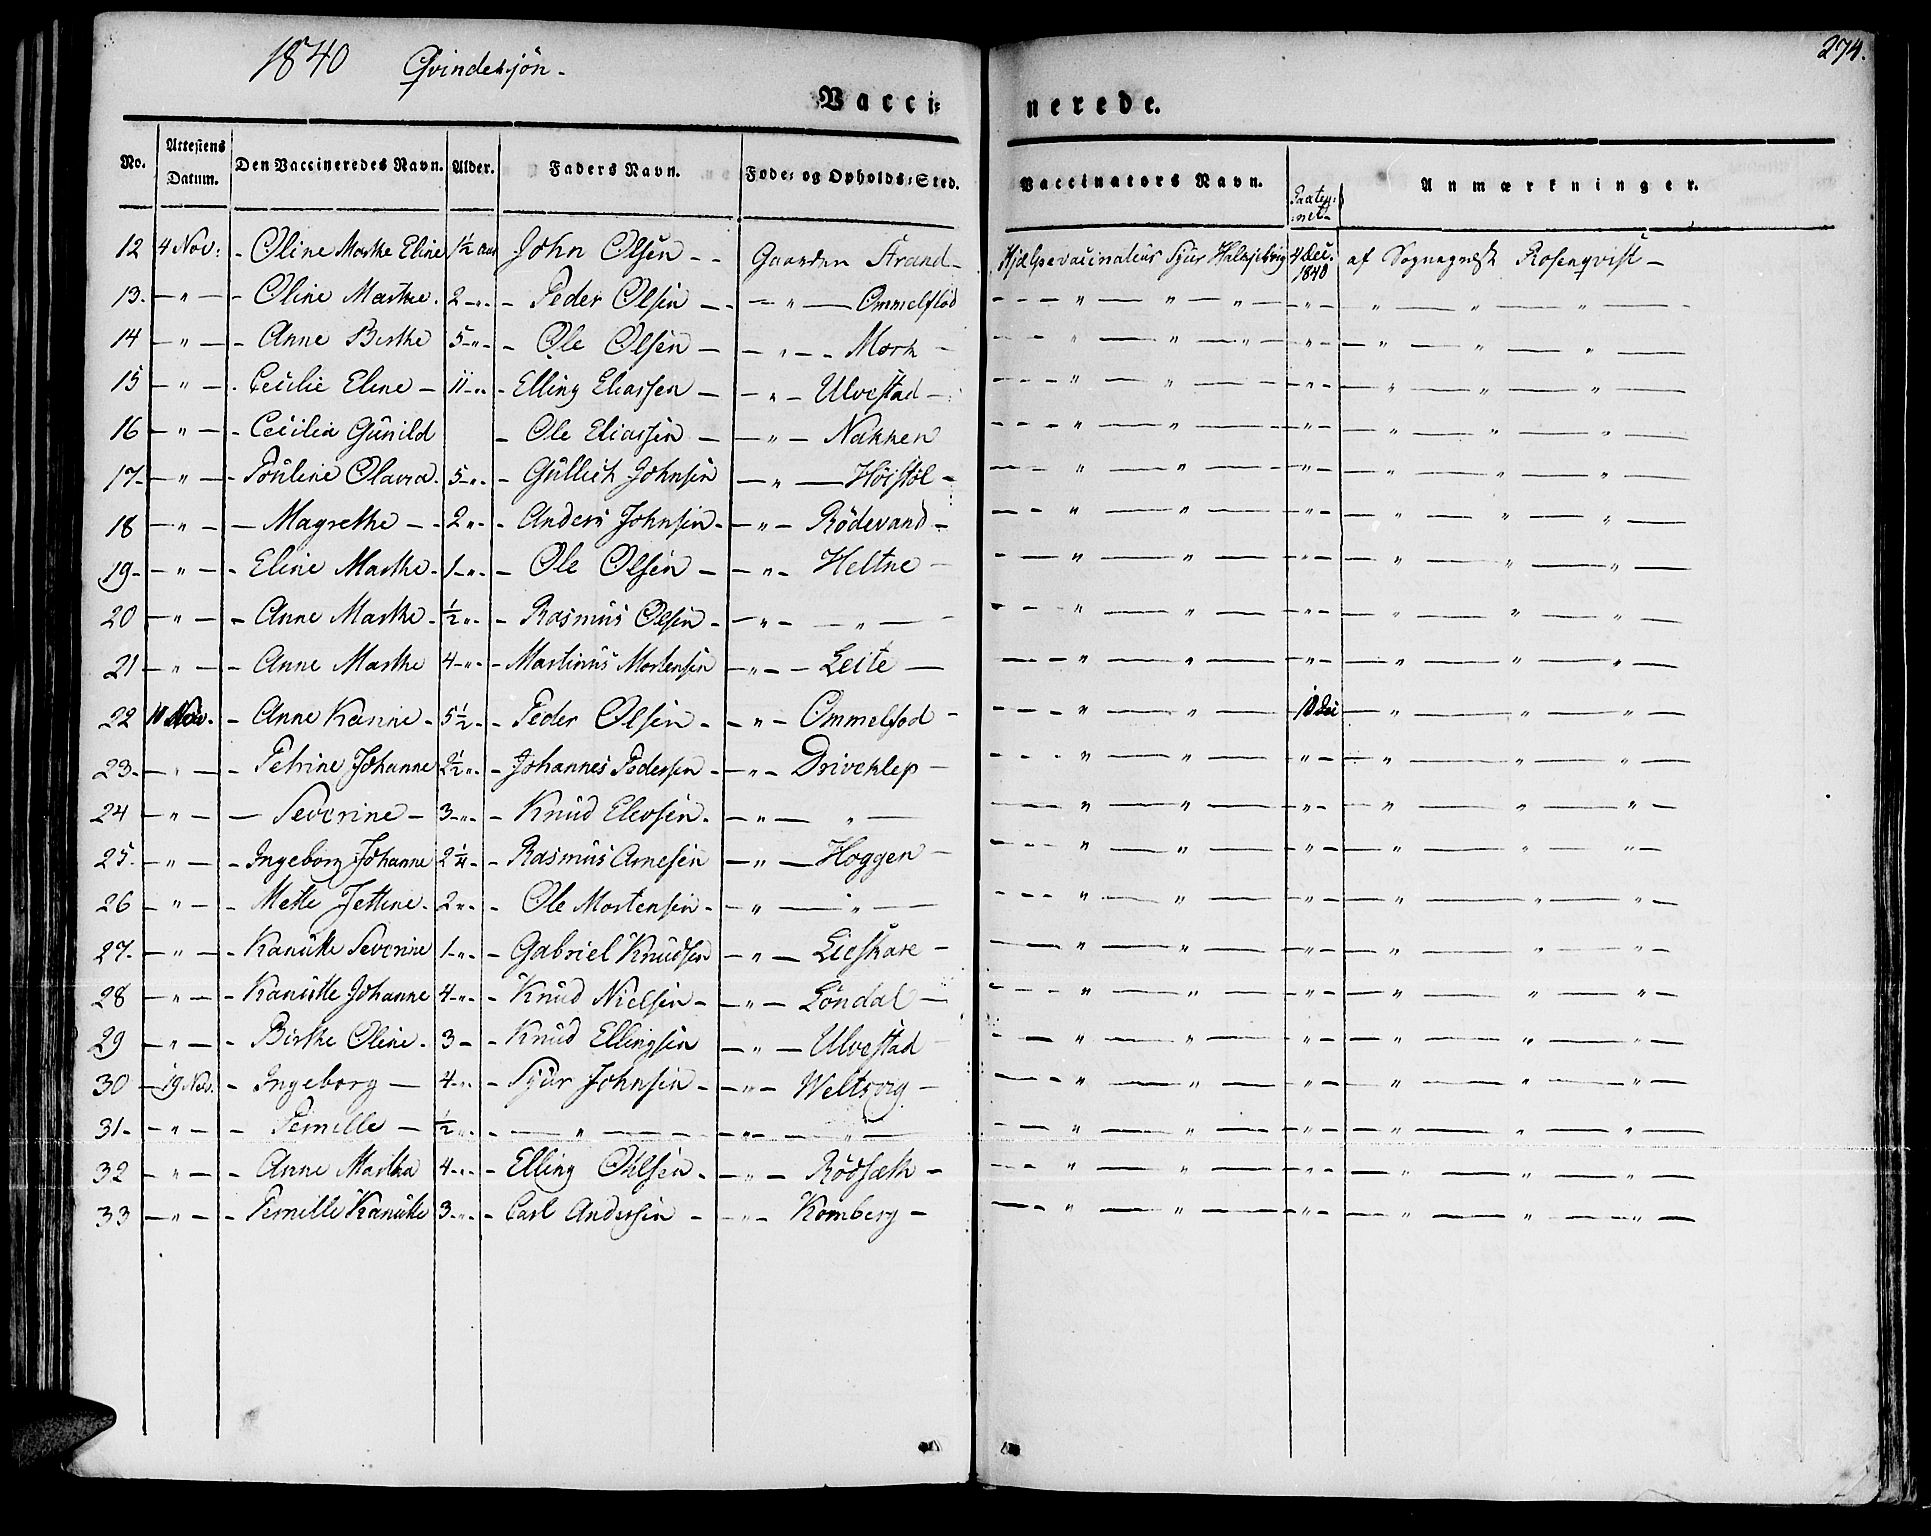 1840 Qvindekjön.
274.
Vacci=nerede.
No. Attestens Datum. Den Vaccineredes Navn. Alder. Faders Navn. Føde= og Opholds=Sted. Vaccinators Navn. Paateg:net Anmærkninger.
12 4 Nov: - Oline Marthe Eline 1½ Aar John Olsen - - Gaarden Strand - Hjelpevaccinateur Sjur 4 Dec. 1840 af Sognepræst Rosenqvist -
13. - " - - Oline Marthe. 2 - " - - Peder Olsen - - " - Ommelstöd - - - " - " - " - - " - " - " - " -
14 - " - - Anne Birthe 5 - " - - Ole Olsen - - " - - Mork - - - - " - " - " - - " - - " - " - " -
15 - " - - Cecilie Eline - 11 - " - - Elling Eliassen - - " - Ulvestad - - - - " - " - - " - - " - " - " -
16 - " - - Cecilia Gunild - Ole Eliassen - - " - Nakken - - - " - " - - " - - " - " - " -
17 - - " - - Pouline Olava. 5 - " - - Gullich Johnsen - " - Höistöl - - - " - " - - " - - " - " - " -
18 - " - - Magrethe - - 2 - " - - Anders Johnsen. - " - Rödevand - - - " - " - - " - - " - " - " -
19 - - " - - Eline Marthe. 1 - " - - Ole Olsen - - " - Heltne - - - " - " - - " - - " - " - " -
20 - " - - Anne Marthe - ½ - " - - Rasmus Olsen - - " - - " - - - - " - " - - " - - " - " - " -
21 - " - - Anne Marthe 4 - " - - Martinus Mortensen - " - Leite - - - - " - " - - " - - " - " - " -
22 11 Nov. - Anne Karine. 5½ - - Peder Olsen - - " - Ommelsöd - - - - " - " - 10 Dec - " - " - " -
23. - " - - Petrine Johanne 2½ " - - Johannes Pedersen - - " - Driveklep - - - - " - " - - " - - " - " - " -
24 - " - - Severine - 3 - " - - Knud Elevsen. - " - " - - - " - " - - " - - " - " - " -
25. - " - - Ingeborg Johanne 2¼ - - Rasmus Arnesen - " - Hoggen - - - - " - " - - " - - " - " - " -
26 - " - - Mette Jettine. 2 " - - Ole Mortensen. - " - " - - - - " - " - - " - - " - " - " -
27. - " - - Kanutte Severine 1 - " - - Gabriel Knudsen - " - Lieskare - - - " - " - - " - - " - " - " -
28 - " - - Kanutte Johanne 4 - " - - Knud Nielsen - - " - Löndal - - - - " - " - - " - - " - " - " -
29 - " - - Birthe Oline. 3 - - Knud Ellingsen - " - Ulvestad - - - " - " - - " - - " - " - " -
30 - 19 Nov. - Ingeborg - 4 - " - - Sjur Johnsen - - " - - - - " - " - - " - - " - " - " -
31 - - " - - Pernille - ½ " - - " - - " - " - - - " - " - - " - - " - " - " -
32 - " - - Anne Martha 4 - " - - Elling Ohlsen. - " - Rödsæth - - - - " - " - - " - - " - " - " -
33 - " - - Pernille Kanutte 3 - " - - Carl Andersen - - " - Komberg - - - " - " - - " - - " - " - " -